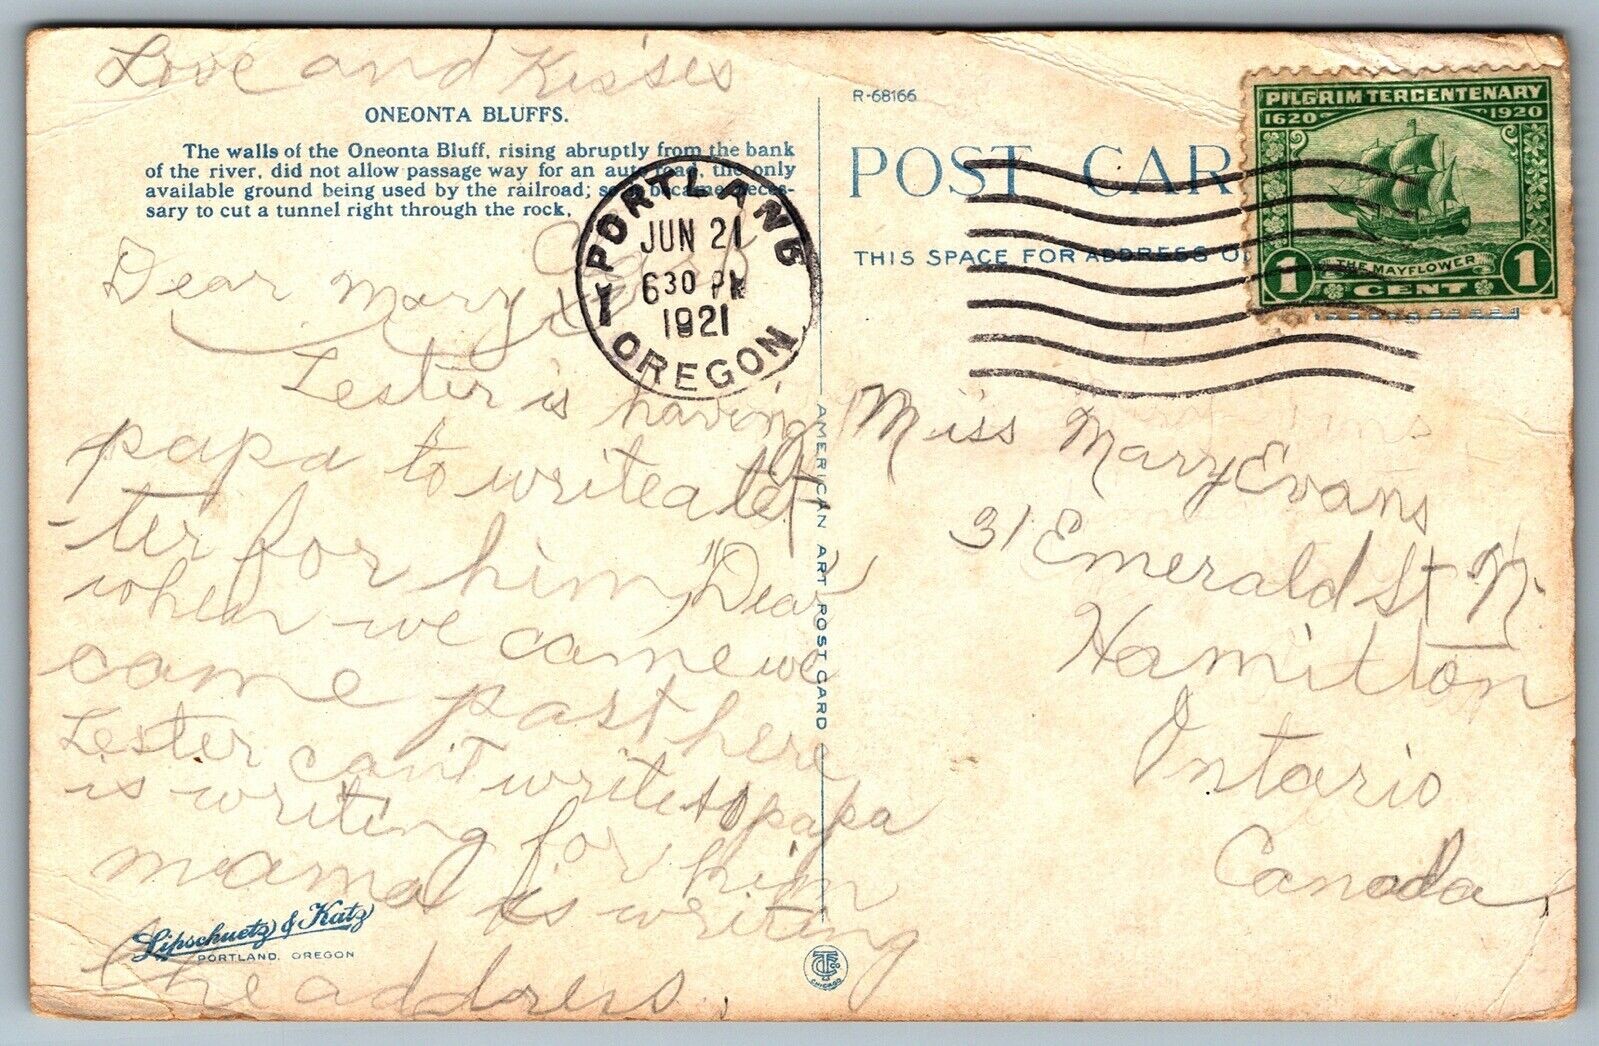 Love and Kisses
ONEONTA BLUFFS.
The walls of the Oneonta Bluff, rising abruptly from the bank
of the river, did not allow passage way for an auto road, the only
available ground being used by the railroad; so it became neces-
sary to cut a tunnel right through the rock.
Dear Mary
Lester is having
papa to write a let
-ter for him, "Dear
when we came we
came past here
Lester can't write so papa
is writing for him
mama is writing
the address.
Lipschuetz & Katz
PORTLAND, OREGON
PORTLAND
JUN 21
630 PM
1921
OREGON
1
AMERICAN ART POST CARD
CHICAGO
R-68166
POST CAR
THIS SPACE FOR ADDRESS O
PILGRIM TERCENTENARY
1620 1920
THE MAYFLOWER
1 CENT 1
Miss Mary Evans
31 Emerald St N.
Hamilton
Ontario
Canada